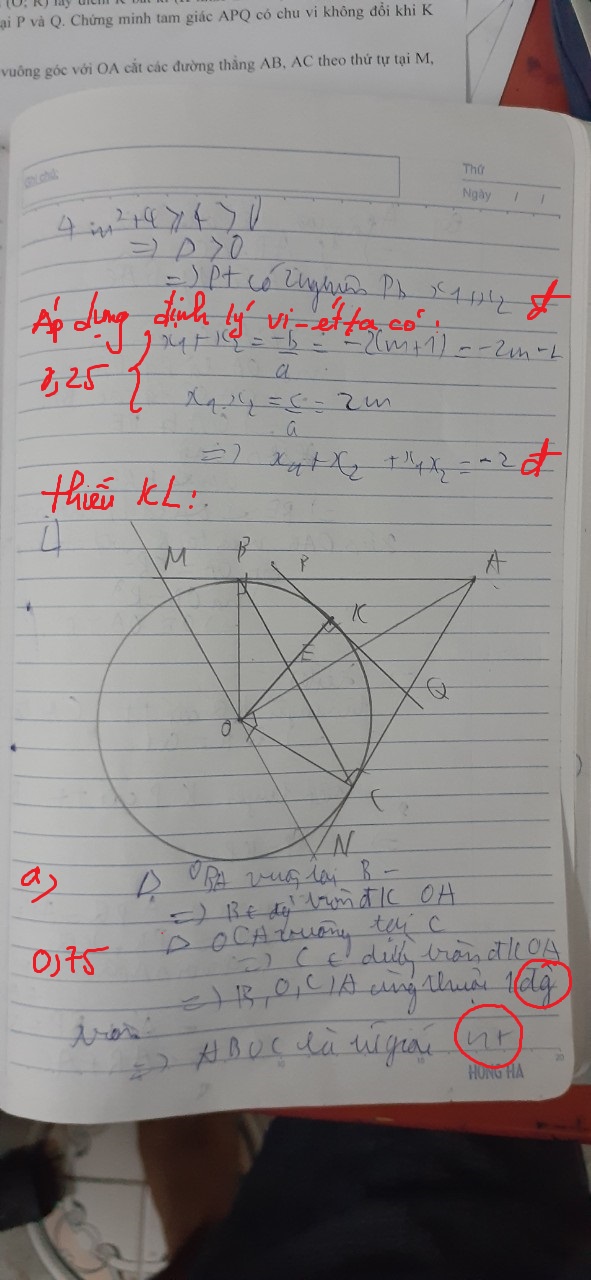 ại P và Q. Chứng minh tam giác APQ có chu vi không đổi khi K
vuông góc với OA cắt các đường thẳng AB, AC theo thứ tự tại M,
Ghi chú:
Thứ
Ngày / /
4m²+4 ≥ 4 > 0
=> Δ > 0
=> Pt có 2 nghiệm Pb x1, x2 đ
Áp dụng định lý vi-ét ta có:
x1 + x2 = -b/a = -2(m+1) = -2m-2
0,25
x1.x2 = c/a = 2m
=> x1+x2 +x1x2 = -2 đ
thiếu KL:
M B P A
K
E
Q
O
C
N
a) Δ OBA vuông tại B
=> B ∈ đg tròn đk OA
0,75 Δ OCA vuông tại C
=> C ∈ đường tròn đk OA
=> B, O, C, A cùng thuộc 1 đg
tròn
=> ABOC là tứ giác nt
HONG HA